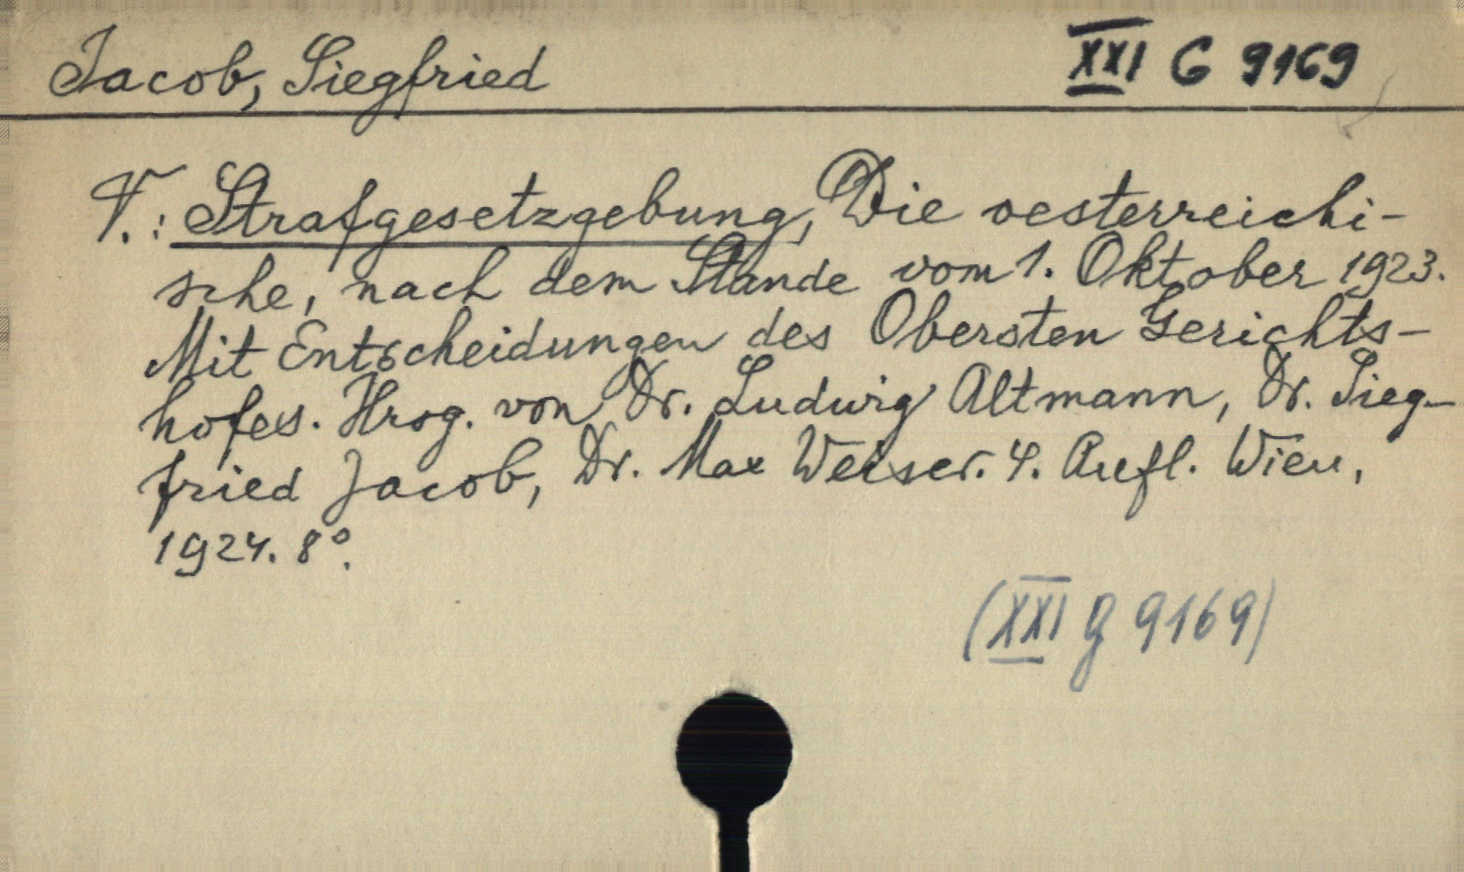 Jacob, Siegfried XXI G 9169
V.: Strafgesetzgebung, Die oesterreichi-
sche, nach dem Stande vom 1. Oktober 1923.
Mit Entscheidungen des Obersten Gerichts-
hofes. Hrsg. von Dr. Ludwig Altmann, Dr. Sieg-
fried Jacob, Dr. Max Weiser. 4. Aufl. Wien,
1924. 8°.
(XXI G 9169)